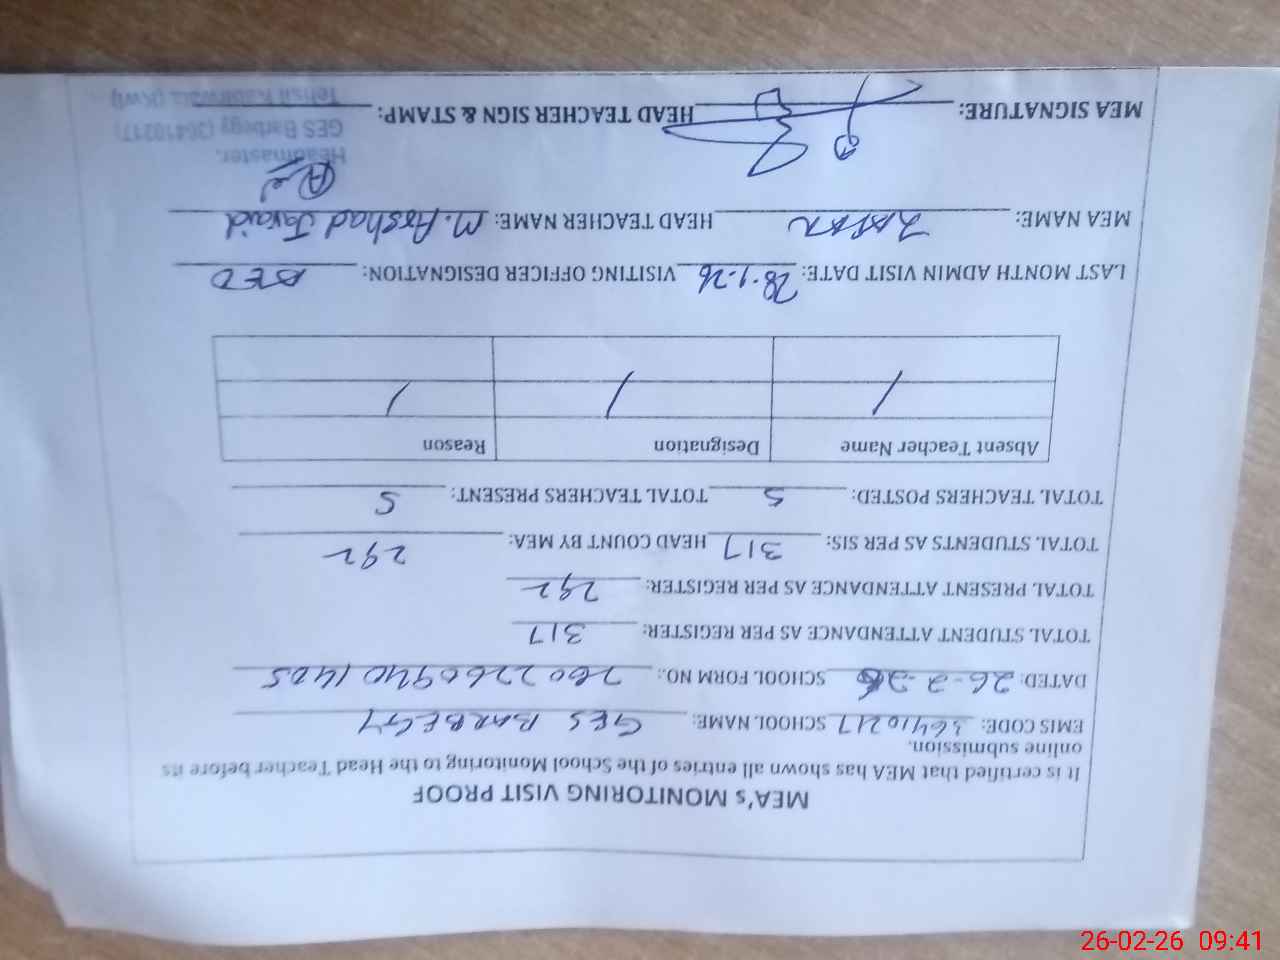 MEA's MONITORING VISIT PROOF
It is certified that MEA has shown all entries of the School Monitoring to the Head Teacher before its
online submission.
EMIS CODE: 36410217 SCHOOL NAME: GES BARBEGY
DATED: 26-2-26 SCHOOL FORM NO.: 26022609401405
TOTAL STUDENT ATTENDANCE AS PER REGISTER: 317
TOTAL PRESENT ATTENDANCE AS PER REGISTER: 292
TOTAL STUDENTS AS PER SIS: 317 HEAD COUNT BY MEA: 292
TOTAL TEACHERS POSTED: 5 TOTAL TEACHERS PRESENT: 5
Absent Teacher Name Designation Reason
/ / /
LAST MONTH ADMIN VISIT DATE: 28-1-26 VISITING OFFICER DESIGNATION: DEO
MEA NAME: HEAD TEACHER NAME: M. Arshad Javaid
Headmaster.
GES Barbegy (36410217)
MEA SIGNATURE: HEAD TEACHER SIGN & STAMP:
Tehsil Kabirwala (Kwl)
26-02-26 09:41